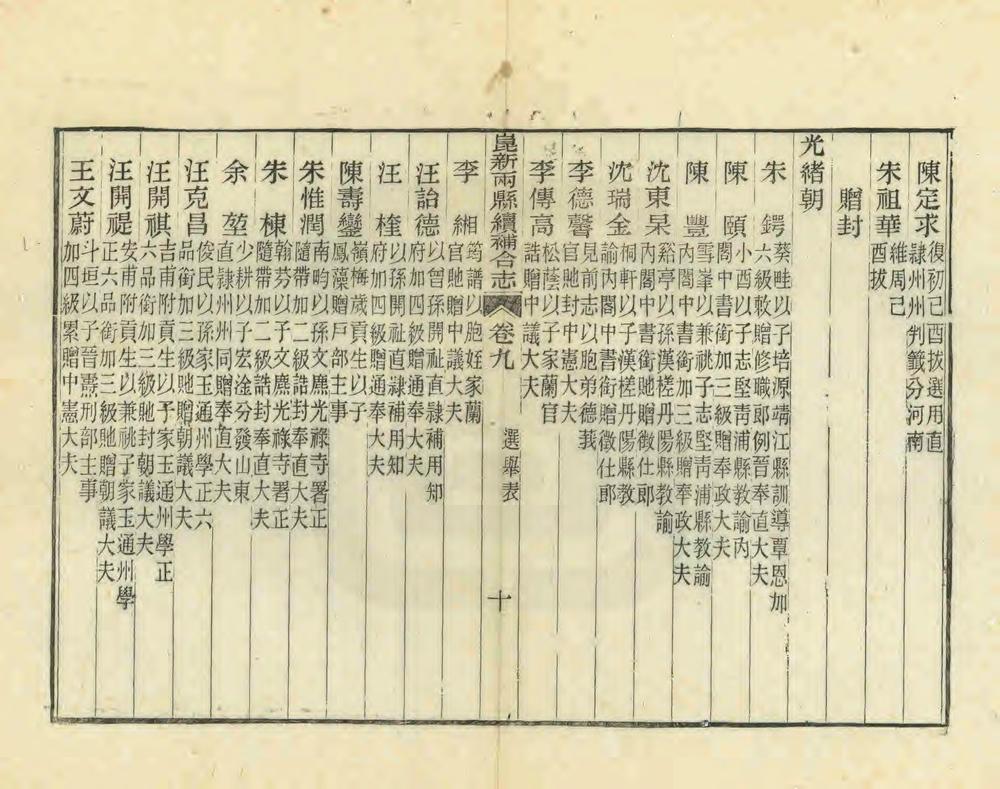 陳定求 復初己酉拔選用直
隸州州判籤分河南
朱祖華 維周己
酉拔
贈封
光緒朝
朱鍔 葵畦以子培源靖江縣訓導覃恩加
六級敕贈修職郎例晉奉直大夫
陳頤 小酉以子志堅青浦縣教諭內
閣中書銜加三級贈奉政大夫
陳豐 雪峯以兼祧子志堅青浦縣教諭
內閣中書銜加三級贈奉政大夫
沈東杲 谿亭以孫漢槎丹陽縣教諭
內閣中書銜貤贈徵仕郎
沈瑞金 桐軒以子漢槎丹陽縣教
諭內閣中書銜贈徵仕郎
李德馨 見前志以胞弟德莪
官貤封中憲大夫
李傳高 松蔭以子家蘭官
誥贈中議大夫
崑新兩縣續補合志 卷九 選舉表 十
李緗 筠譜以胞姪家蘭
官貤贈中議大夫
汪詒德 以曾孫開祉直隸補用知
府加四級贈通奉大夫
汪桂 以孫開祉直隸補用知
府加四級贈通奉大夫
陳壽鑾 嶺梅歲貢生以子
鳳藻贈戶部主事
朱惟潤 南畇以孫文麃光祿寺署正
隨帶加二級誥封奉直大夫
朱棟 翰芬以子文麃光祿寺署正
隨帶加二級誥封奉直大夫
余堃 少耕以子宏淦分發山東
直隸州州同贈奉直大夫
汪克昌 俊民以孫家玉通州學正六
品銜加三級貤贈朝議大夫
汪開祺 吉甫附貢生以子家玉通州學正
六品銜加三級貤封朝議大夫
汪開禔 安甫附貢生以兼祧子家玉通州學
正六品銜加三級貤贈朝議大夫
王文蔚 斗垣以子晉燾刑部主事
加四級累贈中憲大夫